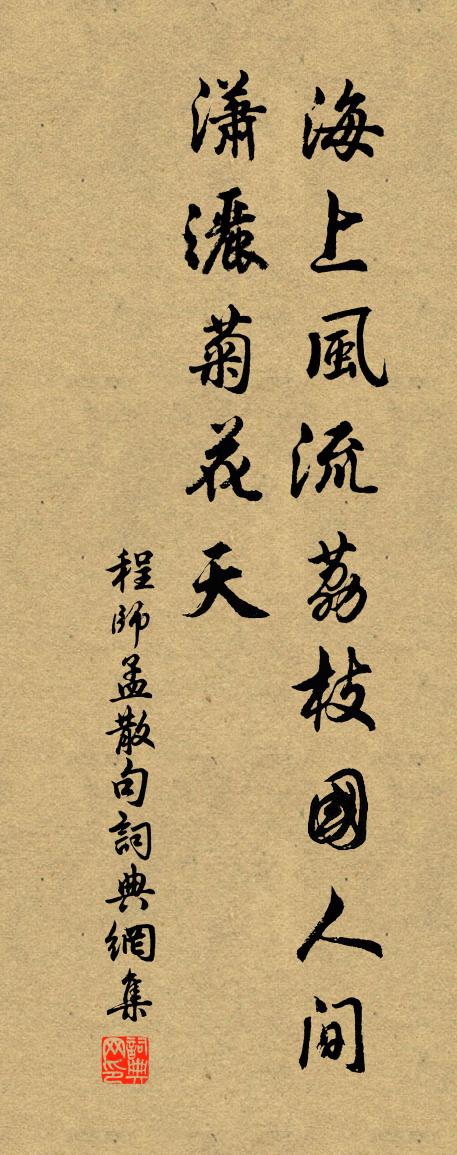 海上風流荔枝國人间
瀟灑菊花天
程師孟散句詞典網集
詞典网印